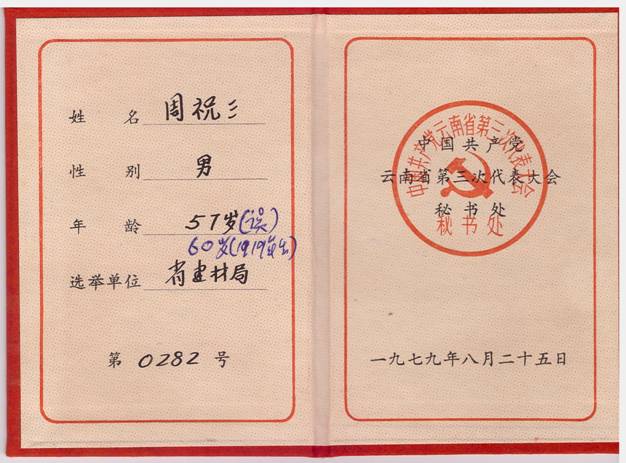 姓 名 周祝三
性 别 男
年 龄 57岁(误)
60岁(1919年生)
选举单位 省建材局
第 0282 号
中国共产党云南省第三次代表大会
秘书处
中国共产党
云南省第三次代表大会
秘书处
一九七九年八月二十五日